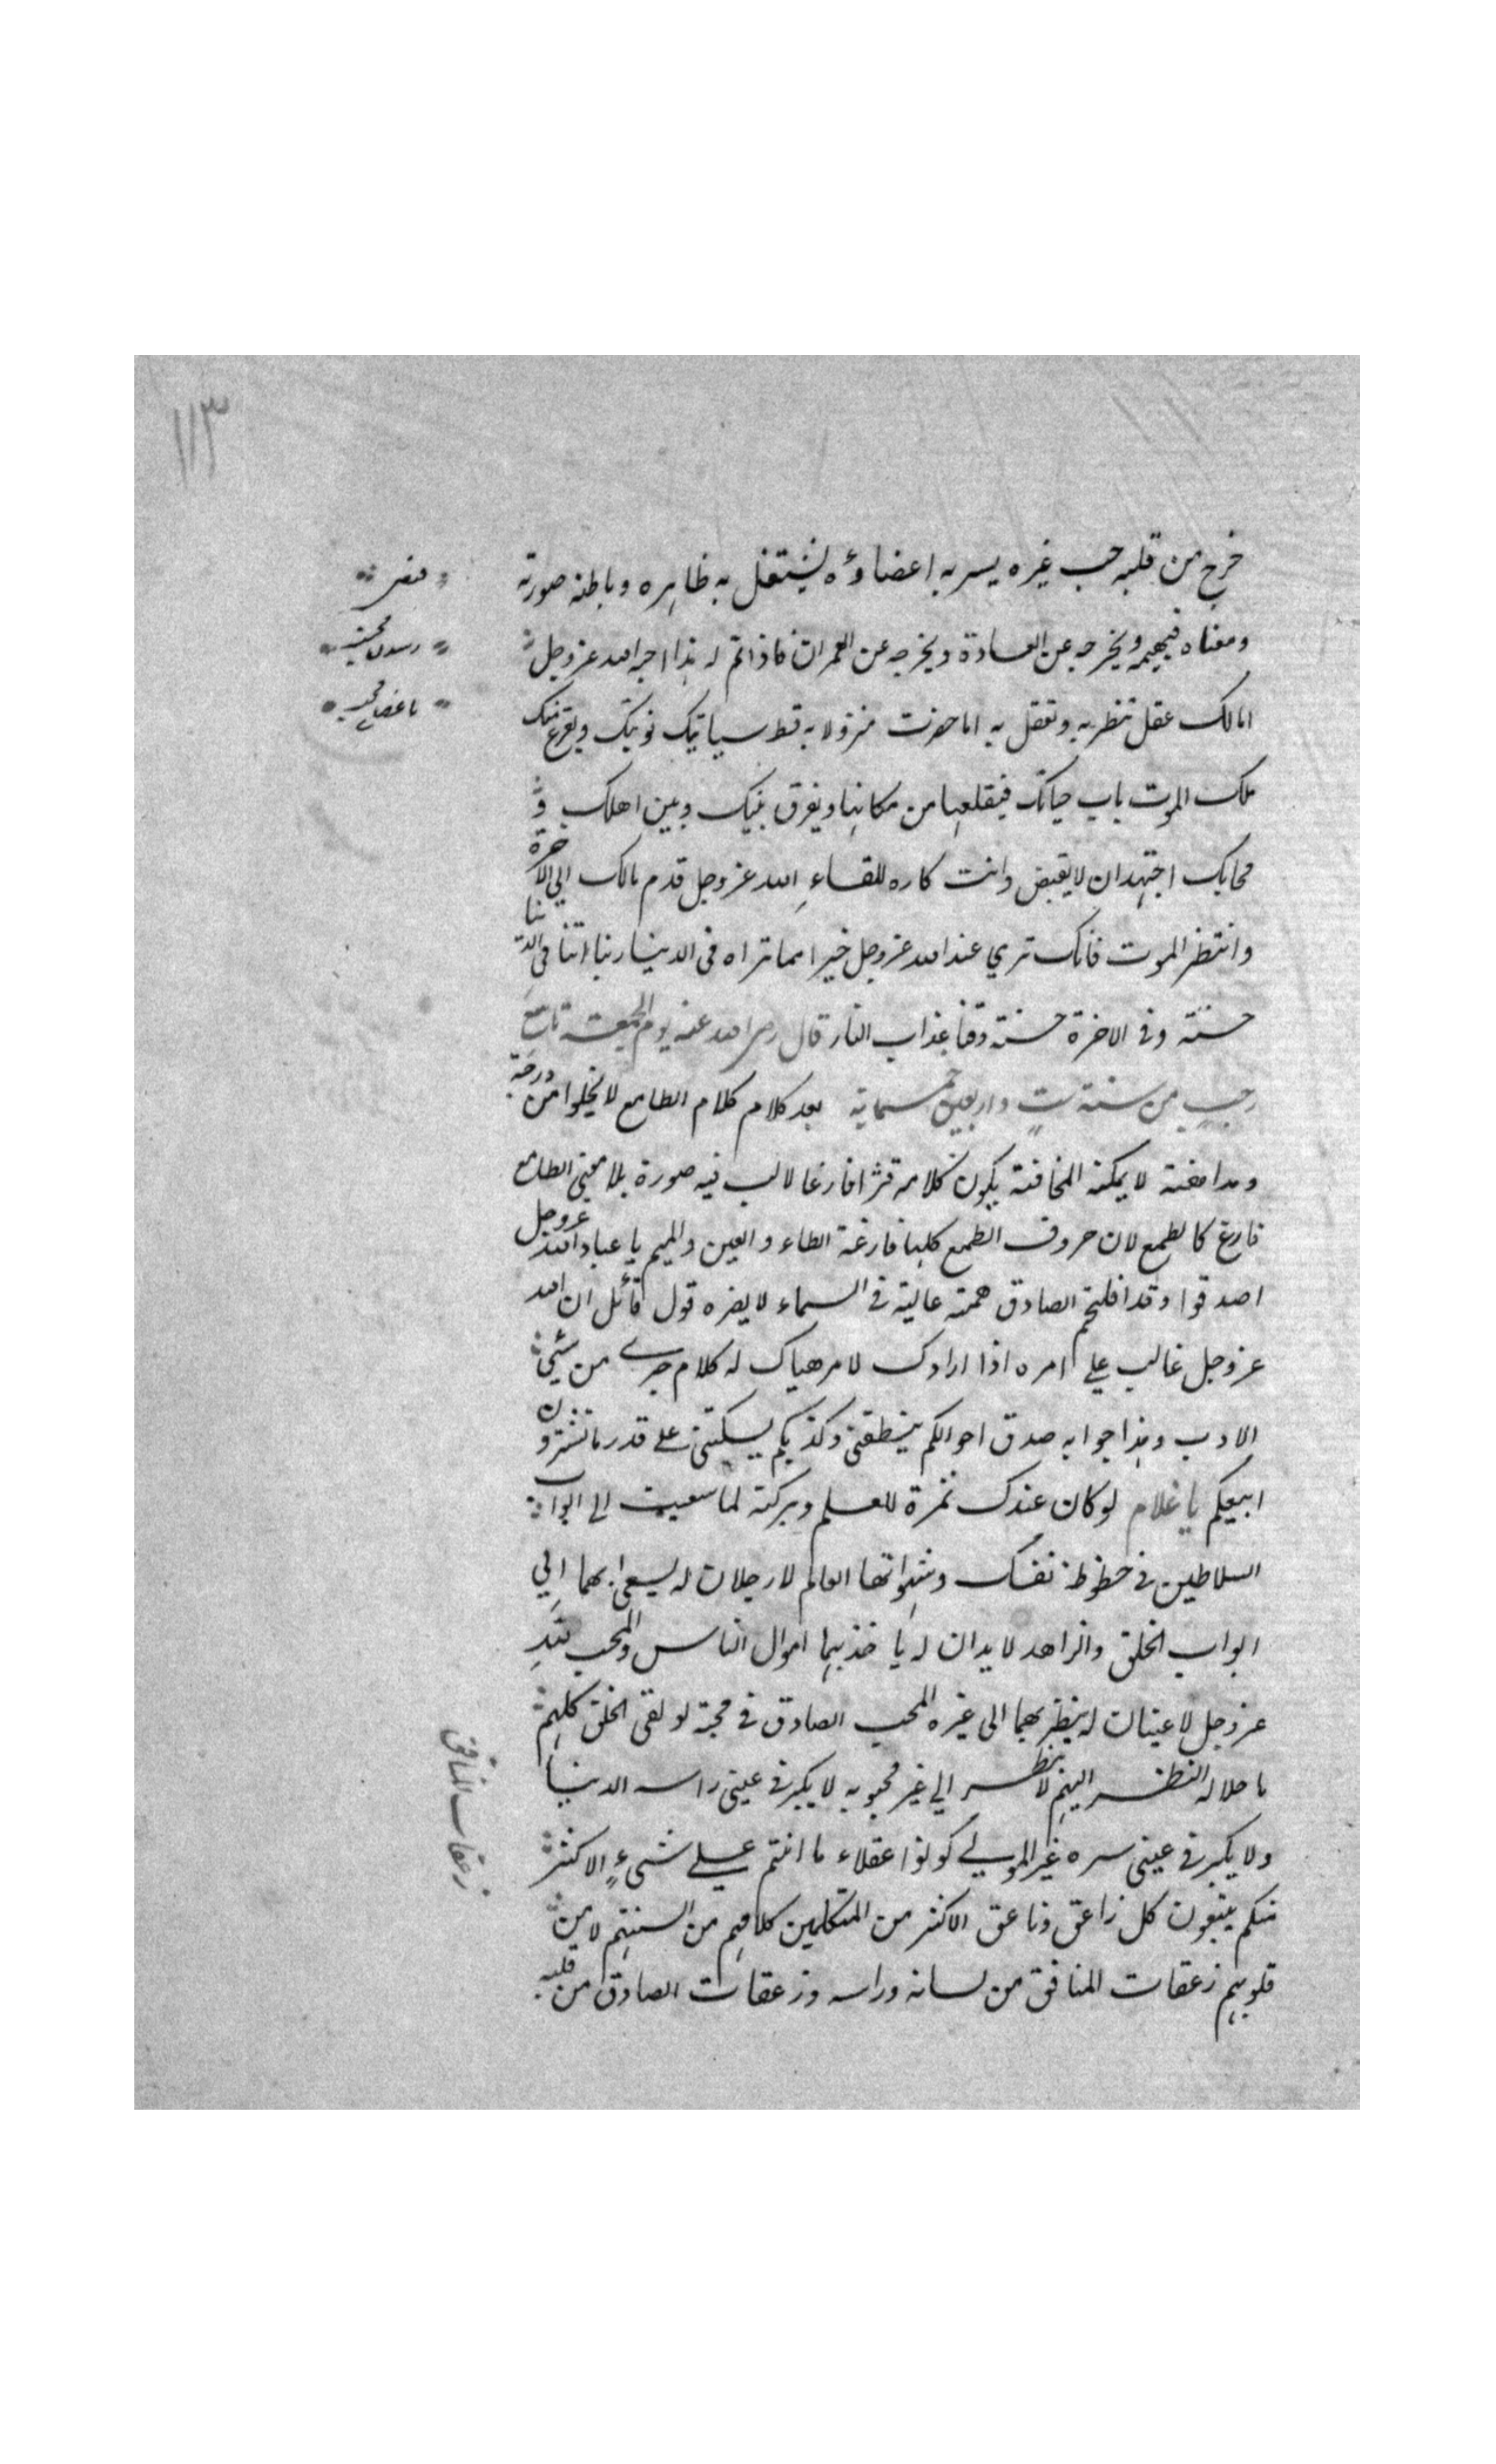 ١١٣
خرج من قلبه حب غيره يسر به اعضاؤه ليشتغل به ظاهره وباطنه صورته
ومعناه فيهيمه ويخرجه عن العادة ويخرجه عن العمران فاذا تم له هذا احبه الله عز وجل
اما لك عقل تنظر به وتعقل به اما حضرت منزولا به قط سياتيك نوبتك ويقرع عنك
ملك الموت باب حياتك فيقلعها من مكانها ويفرق بينك وبين اهلك و
محابك اجتهد ان لا يقبض وانت كاره للقاء الله عز وجل قدم مالك الى الاخرة
وانتظر الموت فانك ترى عند الله عز وجل خيرا مما تراه فى الدنيا ربنا اتنا فى الدنيا
حسنة وفى الاخرة حسنة وقنا عذاب النار قال رضى الله عنه يوم الجمعة تاسع
رجب من سنة ست واربعين خمسماية بعد كلام كلام الطامع لا يخلوا من
ومداهنة لا يمكنه المخافتة يكون كلامه قشرا فارغا لا لب فيه صورة بلا معنى الطامع
فارغ كالطمع لان حروف الطمع كلها فارغة الطاء والعين والميم يا عباد الله عز وجل
اصدقوا وقد افلحتم الصادق همته عالية فى السماء لا يضره قول قائل ان الله
عز وجل غالب على امره اذا ارادك لامر هياك له كلام جرى من شيئ
الادب وهذا جوابه صدق احوالكم ينطقنى وكذبكم يسكتنى على قدر ما تشترون
ابيعكم يا غلام لو كان عندك ثمرة للعلم وبركته لما سعيت الى ابواب
السلاطين فى حظوظ نفسك وشهواتها العالم لا رجلان له يسعى بهما الى
ابواب الخلق والزاهد لا يدان له ياخذ بهما اموال الناس والمحب لله
عز وجل لا عينان له ينظر بهما الى غيره المحب الصادق فى محبته لو لقى الخلق كلهم
ما حلا له النظر اليهم لا ينظر الى غير محبوبه لا يكبر فى عينى راسه الدنيا
ولا يكبر فى عينى سره غير المولى كونوا عقلاء ما انتم على شىء الاكثر
منكم يتبعون كل زاعق وناعق الاكثر من المتكلمين كلامهم من السنتهم لا من
قلوبهم زعقات المنافق من لسانه وراسه وزعقات الصادق من قلبه
زعقات المنافق